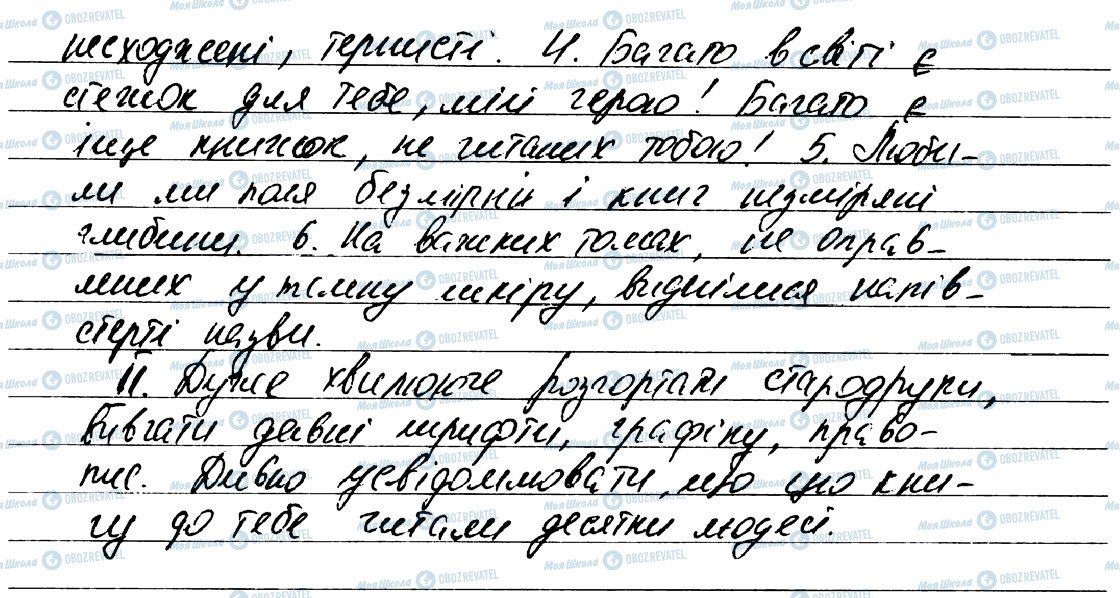 несходжені, тернисті. 4. Багато в світі є
стежок для тебе, мій герою! Багато є
іще книжок, не читаних тобою! 5. Люби-
ли ми поля безмірній і книг незміряні
глибини. 6. На важких томах, не оправ-
лених у темну шкіру, виднілися напів-
стерті назви.
II. Дуже хвилююче розгортати стародруки,
вивчати давні шрифти, графіку, право-
пис. Дивно усвідомлювати, що цю кни-
гу до тебе читали десятки людей.